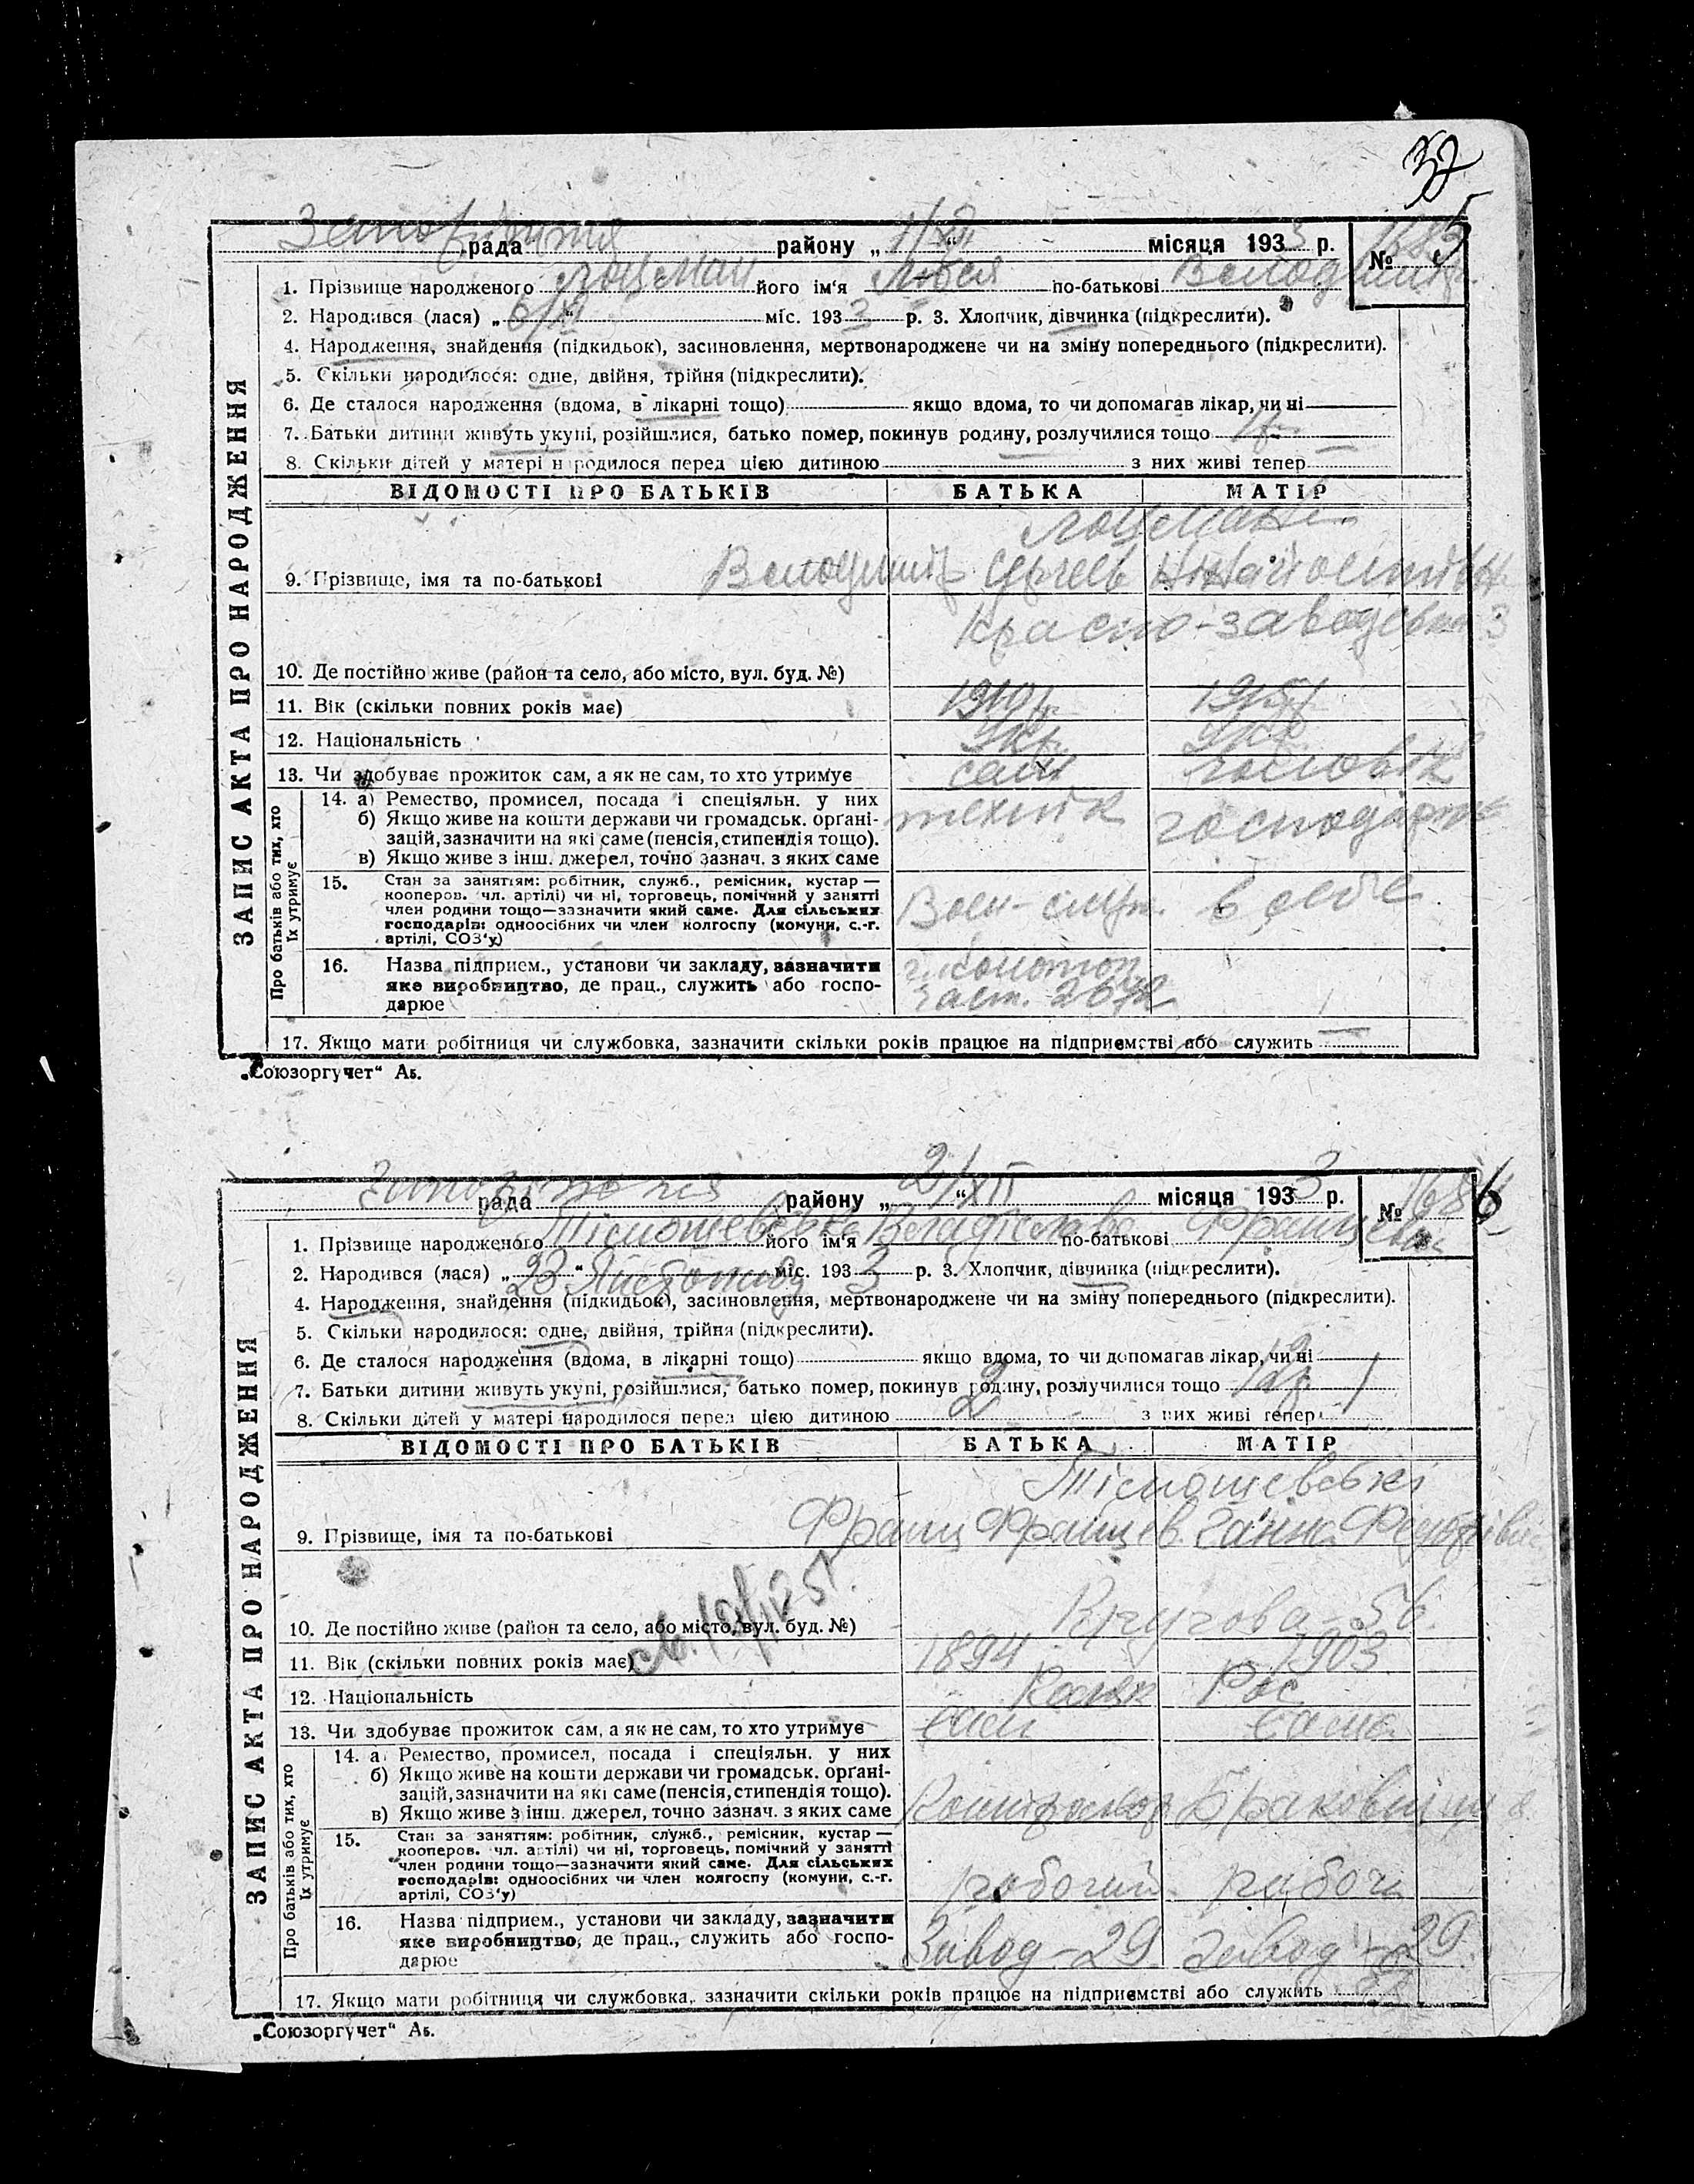 37
Запоріжжя рада району „1/XII“ місяця 1933 р. № 1683 5
1. Прізвище народженого Лоцман його ім'я Люся по-батькові Володимир.
2. Народився (лася) „6/XI“ міс. 1933 р. 3. Хлопчик, дівчинка (підкреслити).
4. Народження, знайдення (підкидьок), засиновлення, мертвонароджене чи на зміну попереднього (підкреслити).
5. Скільки народилося: одне, двійня, трійня (підкреслити).
6. Де сталося народження (вдома, в лікарні тощо) якщо вдома, то чи допомагав лікар, чи ні
7. Батьки дитини живуть укупі, розійшлися, батько помер, покинув родину, розлучилися тощо
8. Скільки дітей у матері народилося перед цією дитиною з них живі тепер
ЗАПИС АКТА ПРО НАРОДЖЕННЯ
ВІДОМОСТІ ПРО БАТЬКІВ БАТЬКА МАТІР
Лоцмани
9. Прізвище, імя та по-батькові Володимир Сергеев
Красно-заводська 3
10. Де постійно живе (район та село, або місто, вул. буд. №)
11. Вік (скільки повних років має) 1910 р.
12. Національність Укр. Укр
13. Чи здобуває прожиток сам, а як не сам, то хто утримує сам чоловік
Про батьків або тих, хто їх утримує
14. а) Ремество, промисел, посада і спеціяльн. у них
б) Якщо живе на кошти держави чи громадськ. орґані-
зацій, зазначити на які саме (пенсія, стипендія тощо).
в) Якщо живе з інш. джерел, точно зазнач. з яких саме
технік господарює
15. Стан за заняттям: робітник, служб., ремісник, кустар —
кооперов. чл. артілі) чи ні, торговець, помічний у занятті
член родини тощо—зазначити який саме. Для сільських
господарів: одноосібних чи член колгоспу (комуни, с.-г.
артілі, СОЗ'у)
Воен-служ. в себе
16. Назва підприєм., установи чи закладу, зазначити
яке виробництво, де прац., служить або госпо-
дарює
г. Конотоп
част.
17. Якщо мати робітниця чи службовка, зазначити скільки років працює на підприємстві або служить
„Союзоргучет“ Аб.
Запоріжжя рада району „2/XII“ місяця 1933 р. № 1684 6
1. Прізвище народженого Тімошевська його ім'я Владіслава по-батькові Францевна
2. Народився (лася) „23“ Листопаду міс. 1933 р. 3. Хлопчик, дівчинка (підкреслити).
4. Народження, знайдення (підкидьок), засиновлення, мертвонароджене чи на зміну попереднього (підкреслити).
5. Скільки народилося: одне, двійня, трійня (підкреслити).
6. Де сталося народження (вдома, в лікарні тощо) якщо вдома, то чи допомагав лікар, чи ні
7. Батьки дитини живуть укупі, розійшлися, батько помер, покинув родину, розлучилися тощо 12 р.
8. Скільки дітей у матері народилося перед цією дитиною 2 з них живі тепер 1
ЗАПИС АКТА ПРО НАРОДЖЕННЯ
ВІДОМОСТІ ПРО БАТЬКІВ БАТЬКА МАТІР
Тімошевські
9. Прізвище, імя та по-батькові Франц Францев. Ганна
56
10. Де постійно живе (район та село, або місто, вул. буд. №)
11. Вік (скільки повних років має) 1894 1903
12. Національність Поляк Рос
13. Чи здобуває прожиток сам, а як не сам, то хто утримує сам сама
Про батьків або тих, хто їх утримує
14. а) Ремество, промисел, посада і спеціяльн. у них
б) Якщо живе на кошти держави чи громадськ. орґані-
зацій, зазначити на які саме (пенсія, стипендія тощо).
в) Якщо живе з інш. джерел, точно зазнач. з яких саме
Контрольор Браковщица
15. Стан за заняттям: робітник, служб., ремісник, кустар —
кооперов. чл. артілі) чи ні, торговець, помічний у занятті
член родини тощо—зазначити який саме. Для сільських
господарів: одноосібних чи член колгоспу (комуни, с.-г.
артілі, СОЗ'у)
робочий рабоч
16. Назва підприєм., установи чи закладу, зазначити
яке виробництво, де прац., служить або госпо-
дарює
Завод-29 Завод-29.
17. Якщо мати робітниця чи службовка, зазначити скільки років працює на підприємстві або служить
„Союзоргучет“ Аб.